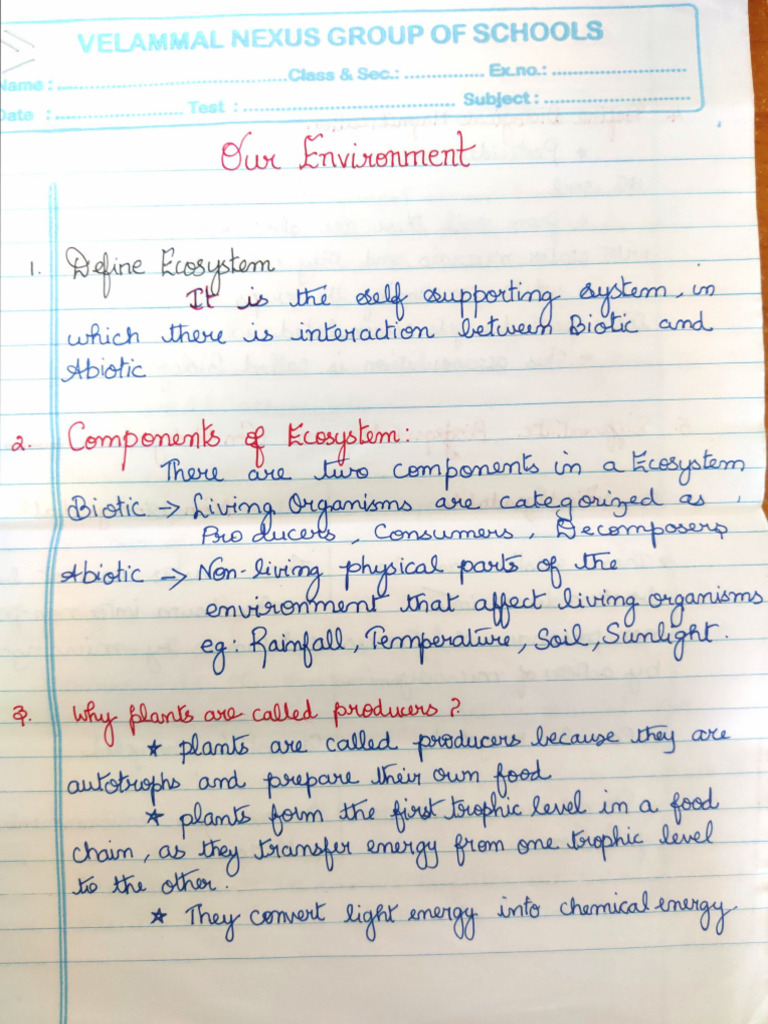 VELAMMAL NEXUS GROUP OF SCHOOLS
Name : ........................ Class & Sec.: ............... Ex.no.: .........................
Date : ........................ Test : ........................ Subject : ........................
Our Environment
1. Define Ecosystem
It is the self supporting system, in
which there is interaction between Biotic and
Abiotic
2. Components of Ecosystem:
There are two components in a Ecosystem
Biotic → Living Organisms are categorized as,
Producers, Consumers, Decomposers
Abiotic → Non-living physical parts of the
environment that affect living organisms
eg: Rainfall, Temperature, Soil, Sunlight.
3. Why plants are called producers?
* plants are called producers because they are
autotrophs and prepare their own food
* plants form the first trophic level in a food
chain, as they transfer energy from one trophic level
to the other.
* They convert light energy into chemical energy.